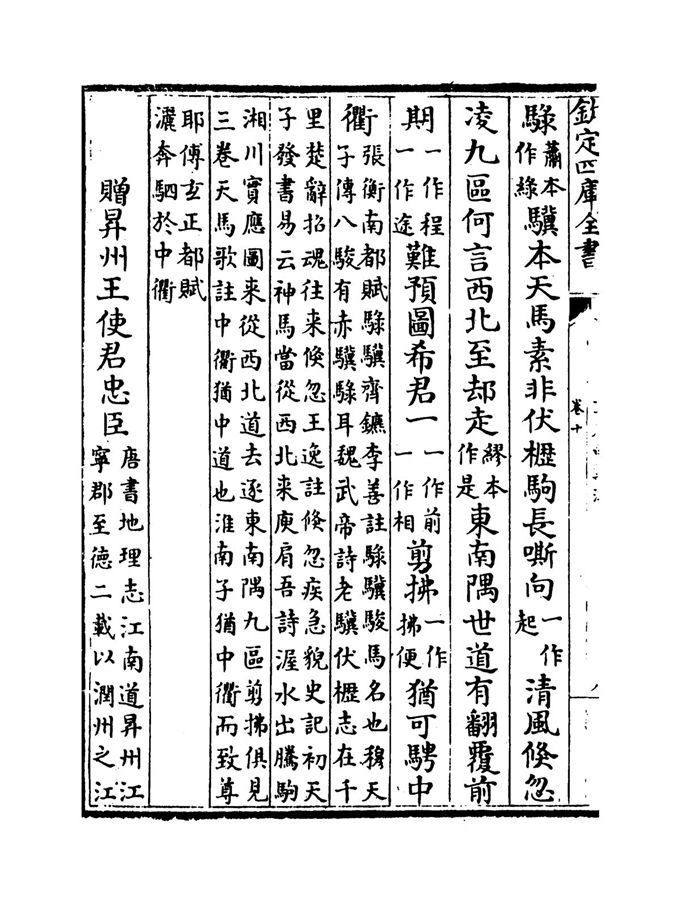 欽定四庫全書
卷十
騄蕭本作緑驥本天馬素非伏櫪駒長嘶向一作起清風倐忽
凌九區何言西北至却走繆本作是東南隅世道有翻覆前
期一作程一作途難預圖希君一一作前一作相剪拂一作拂便猶可騁中
衢張衡南都賦騄驥齊鑣李善註騄驥駿馬名也穆天
子傳八駿有赤驥騄耳魏武帝詩老驥伏櫪志在千
里楚辭招魂往来倐忽王逸註倐忽疾急貌史記初天
子發書易云神馬當從西北来庾肩吾詩渥水出騰駒
湘川實應圖来從西北道去逐東南隅九區剪拂俱見
三卷天馬歌註中衢猶中道也淮南子猶中衢而致尊
耶傅玄正都賦
灑奔駟於中衢
贈昇州王使君忠臣唐書地理志江南道昇州江
寧郡至德二載以潤州之江